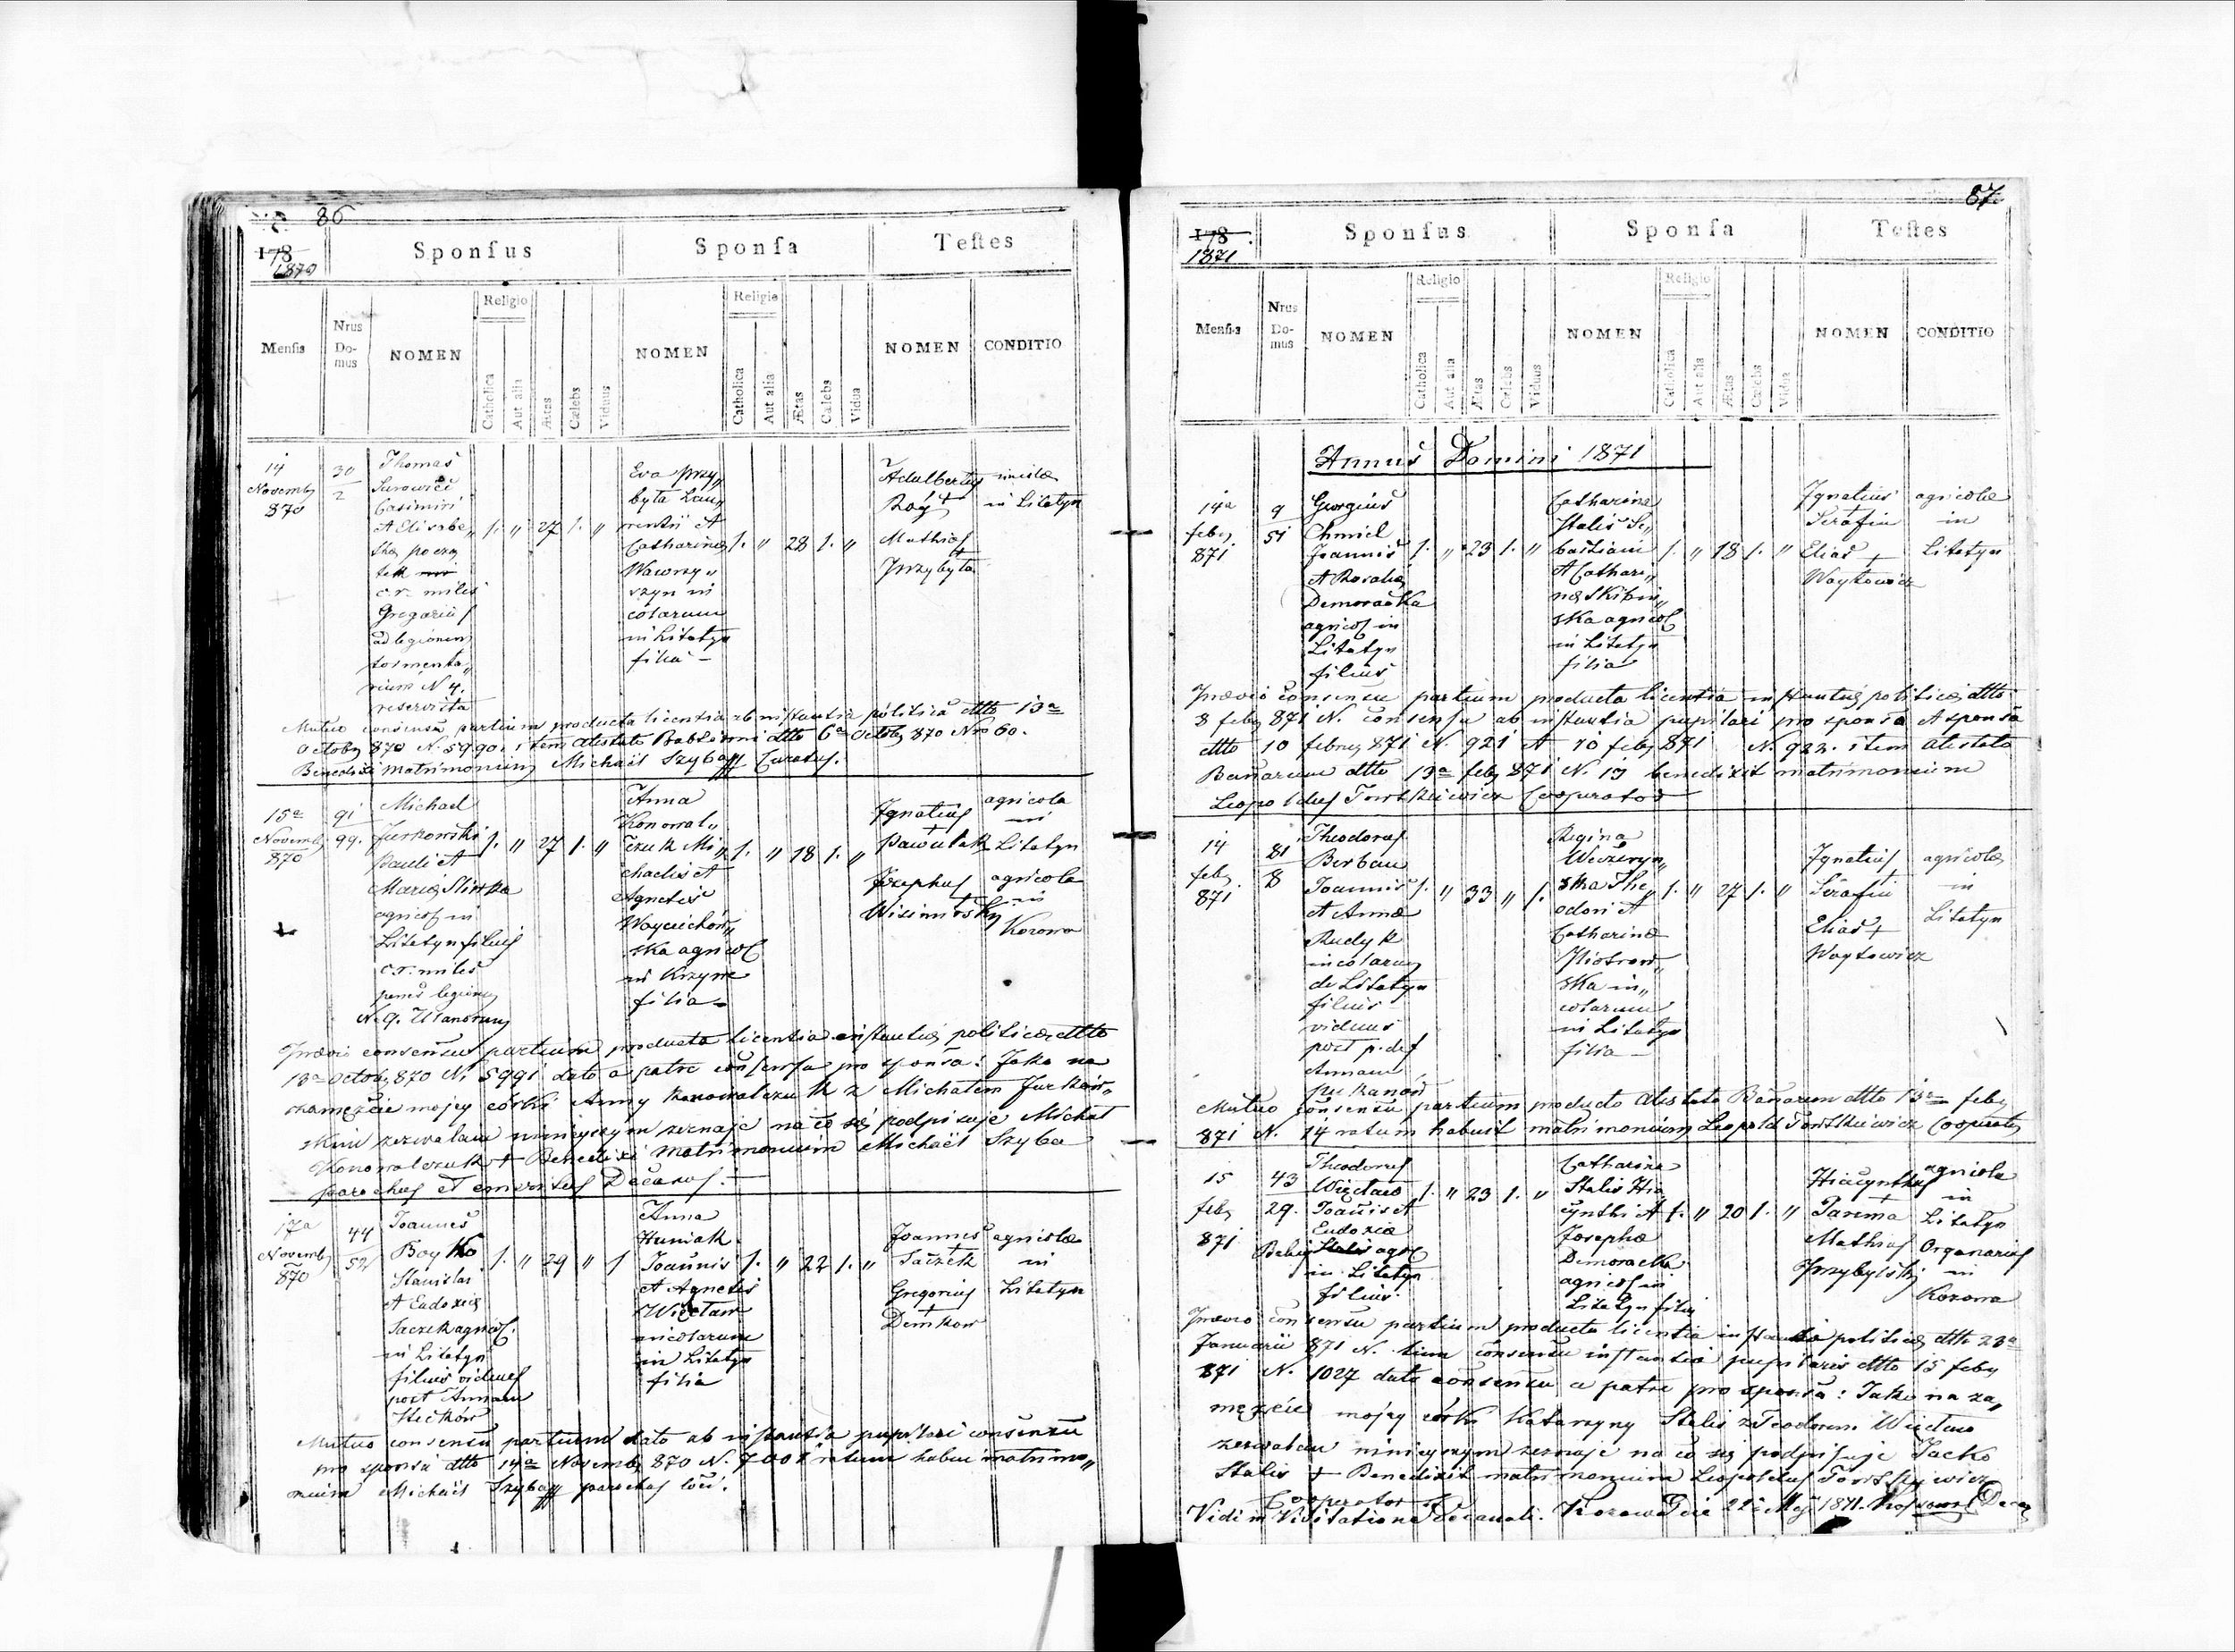 86
178
1870
Sponsus
Sponsa
Testes
Mensis
Nrus Domus
NOMEN
Religio
Catholica
Aut alia
Ætas
Cælebs
Viduus
NOMEN
Religio
Catholica
Aut alia
Ætas
Cælebs
Vidua
NOMEN
CONDITIO
14
Novemb
870
30
2
Thomas
Surowiec
Casimiri
et Elisabe„
thæ począ
tek
c.r. miles
Gregarius
ad legionem
tormenta„
rium N 4.
reservista
1. „ 27 1. „
Eva przy„
byta Lau„
rentii et
Catharinæ
Wawrzy„
czyn in
colarum
in Litatyn
filia —
1. „ 28 1. „
Adalbertus
Róg +
Mathias
+
Przybyta
incolæ
in Litatyn
Mutuo consensu partium producta licentia ab instantia politica dtto 13a
Octob 870 N. 5990. item atestato dtto 6a Octob 870 Nro 60.
Benedixi matrimonium Michael Szyba Curatus.
15a
Novemb
870
91
99.
Michael
Jurkowski
Pauli et
Mariæ Sliwka
agricol in
Litatyn filius
c.r. miles
penes legionem
N. 9. Ulanorum
1. „ 27 1. „
Anna
Konowal„
czuk Mi„
chaelis et
Agnetis
Woyciechow„
ska agricol
in Krzywe
filia —
1. „ 18 1. „
Ignatius
+
Pawulak
Josephus
+
agricola
in
Litatyn
agricola
in
Kozowa
Prævio consensu partium producta licentia instantiæ politicæ dtto
13a Octob 870 N. 5991 dato a patre consensu pro sponsa: Jako na
zamęzcie mojey córki Anny Konowalczuk z Michałem Jurkow„
skim zezwalam niniejszym zeznaję na co się podpisuje Michał
Konowalczuk + Benedixi matrimonium Michael Szyba
parochus et emeritus Decanus.
17a
Novemb
870
44
52
Joannes
Boyko
Stanislai
et Eudoxiæ
Saczek agricol.
in Litatyn
filius viduus
post Annam
Steckow
1. „ 29 „ 1
Anna
Huniak
Joannis
et Agnetis
Więcław
incolarum
in Litatyn
filia
1. „ 22 1. „
Joannes
+
Saczek
Gregorius
+
Demkow
agricolæ
in
Litatyn
Mutuo consensu partium dato ab instantia pupilari consensu
pro sponsa dtto 14a Novemb 870 N. 7001 ratum habui matrimo„
nium Michael Szyba parochus loci.
87.
178
1871
Sponsus
Sponsa
Testes
Mensis
Nrus Domus
NOMEN
Religio
Catholica
Aut alia
Ætas
Cælebs
Viduus
NOMEN
Religio
Catholica
Aut alia
Ætas
Cælebs
Vidua
NOMEN
CONDITIO
Annus Domini 1871
14a
feb
871
9
51
Georgius
Chmiel
Joannis
et Rosaliæ
Demoracka
agricol in
Litatyn
filius
1. „ 23 1. „
Catharina
Stalis Se„
bastiani
et Cathari„
næ Skibin„
ska agricol
in Litatyn
filia
1. „ 18 1. „
Ignatius
+
Serafin
Elias +
Woytowicz
agricolæ
in
Litatyn
Prævio consensu partium producta licentia instantiæ politicæ dtto
8 feb 871 N. consensu ab instantia pupilari pro sponso et sponsa
dtto 10 febr 871 N. 921 et 10 feb 871 N. 922. item atestato
Bannorum dtto 13a feb 871 N. 13 benedixit matrimonium
Leopoldus Towtkiewicz Cooperator
14
feb
871
81
8
Theodorus
Berban
Joannis
et Anna
Rudyk
incolarum
de Litatyn
filius
viduus
post p. def
Annam
1. „ 33 „ 1.
Regina
Wieczeryn„
ska The„
odori et
Catharina
Piotrow„
ska in„
colarum
in Litatyn
filia —
1. „ 27 1. „
Ignatius
+
Serafin
Elias +
Woytowicz
agricolæ
in
Litatyn
Mutuo consensu partium producto atestato Bannorum dtto 13a feb
871 N. 14 ratum habuit matrimonium Leopold Towtkiewicz Cooperator
15
feb
871
43
29.
Theodorus
Więcław
Joannis et
Eudoxia
agricol
in Litatyn
filius.
1. „ 23 1. „
Catharina
Stalis Hia
cynthi et
Josepha
Demoracka
agricol in
Litatyn filia
1. „ 20 1. „
Hiacynthus
+
Tarima
Mathias
Przybylski
agricola
in
Litatyn
Organarius
in
Kozowa
Prævio consensu partium producta licentia instantia politicæ dtto 23a
Januarii 871 N. consensu instantia pupilaris dtto 15 feb
871 N. 1027 dato consensu a patre pro sponsa: Jako na za„
męzcie mojey córki Katarzyny Stalis z Teodorem Więcław
zezwalam niniejszym zeznaję na co się podpisuje Jacko
Stalis + Benedixit matrimonium Leopoldus Towtkiewicz
Cooperator
Vidi in Visitatione Decanali. Kozowa die 22 Maj 1871.